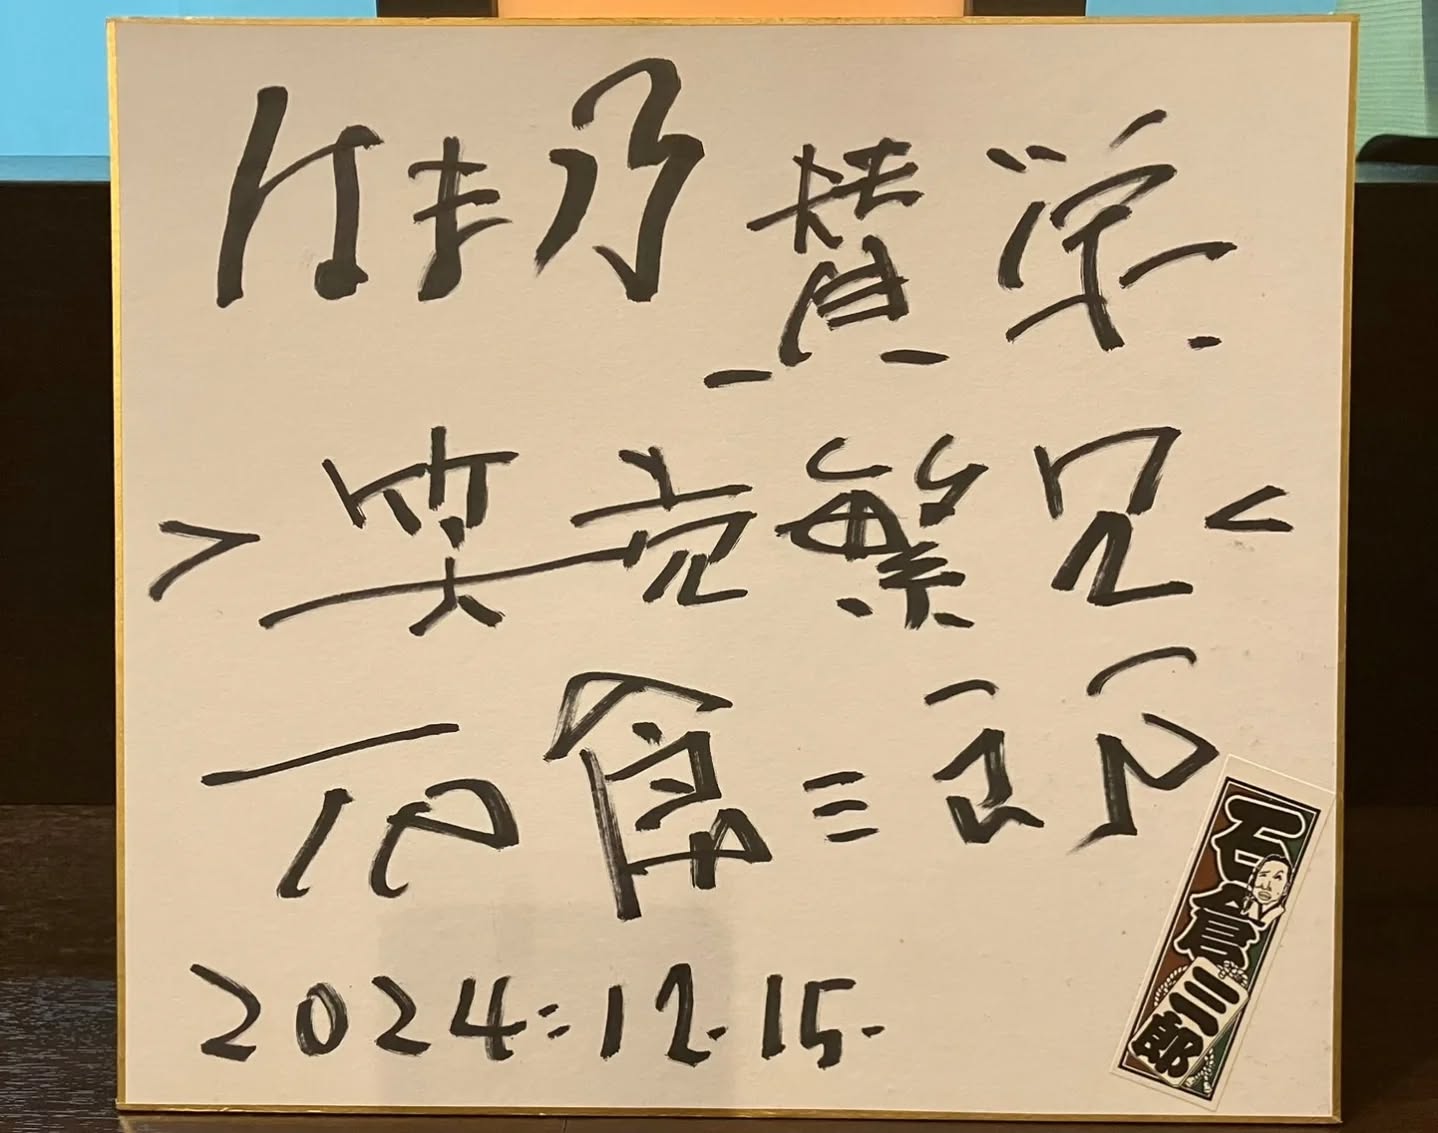 はま乃 賛
＞笑売繁＜
石倉三郎
2024.12.15.
石倉三郎